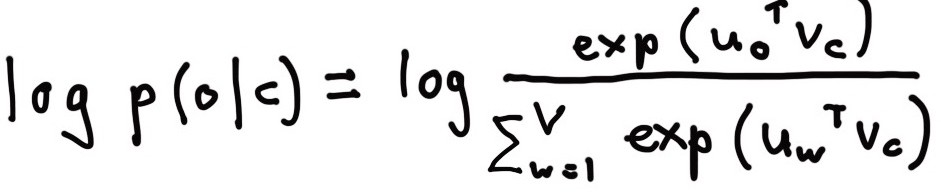 log p(o|c) = log exp(u_o^T v_c) / ∑_{w=1}^V exp(u_w^T v_c)